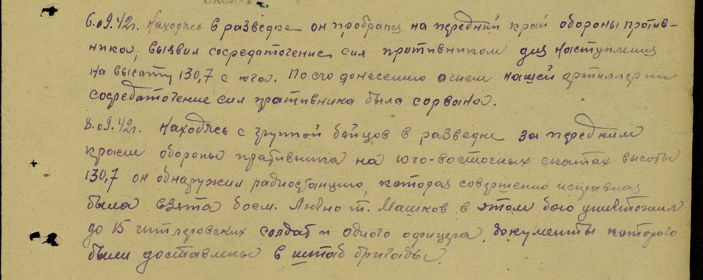 6.09.42г. Находясь в разведке он пробрался на передний край обороны против-
ника, выявил сосредаточение сил противником для наступления
на высоту 130,7 с юга. По его донесению огнем нашей артиллерии
сосредаточение сил пративника была сорвано.
8.09.42г. Находясь с группой бойцов в разведке за передним
краем обороны пративника на юго-восточных скатах высоты
130,7 он обнаружил радиостанцию, которая совершенно исправная
была взята боем. Лично т. Машков в этом бою уничтожил
до 15 гитлеровских солдат и одного офицера, документы которого
были доставлены в штаб бригады.